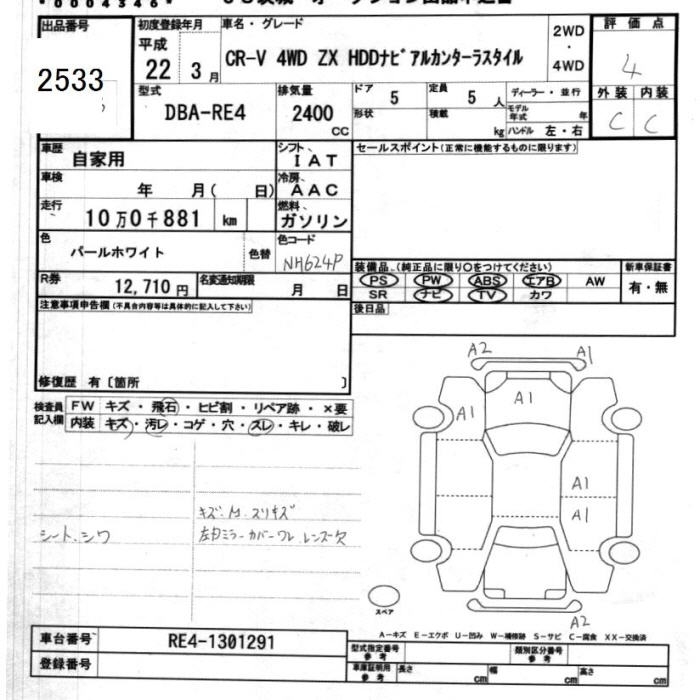 出品番号
2533
初度登録年月
平成
22 年 3 月
車名・グレード
CR-V 4WD ZX HDDナビアルカンターラスタイル
2WD
・
4WD
評価点
4
外装 内装
C C
型式
DBA-RE4
排気量
2400
CC
ドア
5
定員
5 人
形状
積載
kg
ディーラー・並行
モデル年式 年
ハンドル 左・右
車歴
自家用
シフト、
IAT
セールスポイント(正常に機能するものに限ります)
車検
年 月( 日)
冷房、
AAC
走行
10万0千881 km
燃料、
ガソリン
色
パールホワイト
色替
色コード
NH624P
装備品、(純正品に限り○をつけてください)
新車保証書
PS PW ABS エアB AW
SR ナビ TV カワ
有・無
R券
12,710 円
名変通知期限
月 日
後日品
注意事項申告欄(不具合内容等は具体的に記入して下さい)
修復歴 有〔箇所 〕
検査員
記入欄
FW キズ・飛石・ヒビ割・リペア跡・×要
内装 キズ・汚レ・コゲ・穴・スレ・キレ・破レ
A2 A1
A1 A1
A1
A1
A2
シート、シワ
スリキズ
カバーワレ レンズ欠
スペア
A-キズ E-エクボ U-凹み W-補修跡 S-サビ C-腐食 XX-交換済
車台番号
RE4-1301291
登録番号
型式指定番号
参考
類別区分番号
参考
車庫証明用
参考
長さ cm
幅 cm
高さ cm